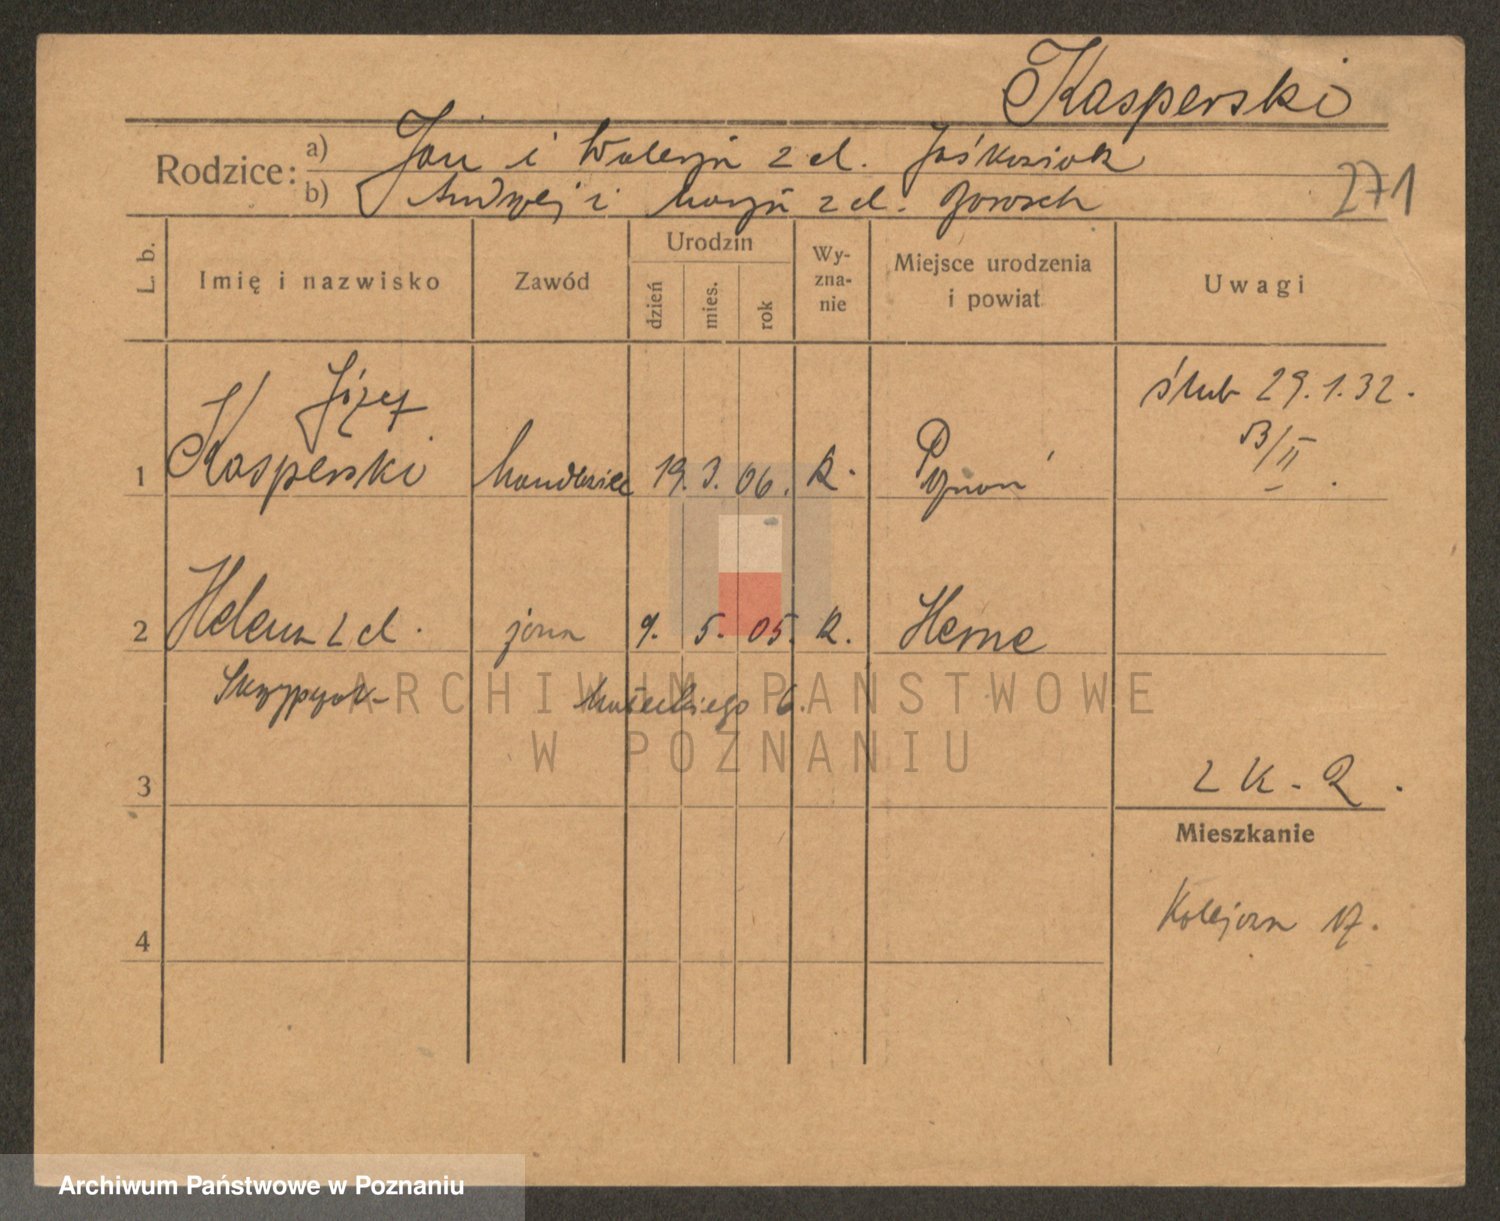 Kasperski
Rodzice: a) Jan i Walerja z d. Jaśkowiak
b) Andrzej i Marja z d.
271
L. b.
Imię i nazwisko
Zawód
Urodzin
dzień
mies.
rok
Wy-
zna-
nie
Miejsce urodzenia
i powiat
Uwagi
Józef
1 Kasperski handlowiec 19. 3. 06. R. Poznań
ślub 29.1.32.
B/II
2 Helena z d. żona 9. 5. 05. R. Herne
Małeckiego 6.
ARCHIWUM PAŃSTWOWE
W POZNANIU
3
Z K. R.
Mieszkanie
Kolejowa 17.
4
Archiwum Państwowe w Poznaniu